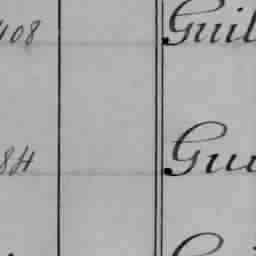 408 Guil
84 Gui